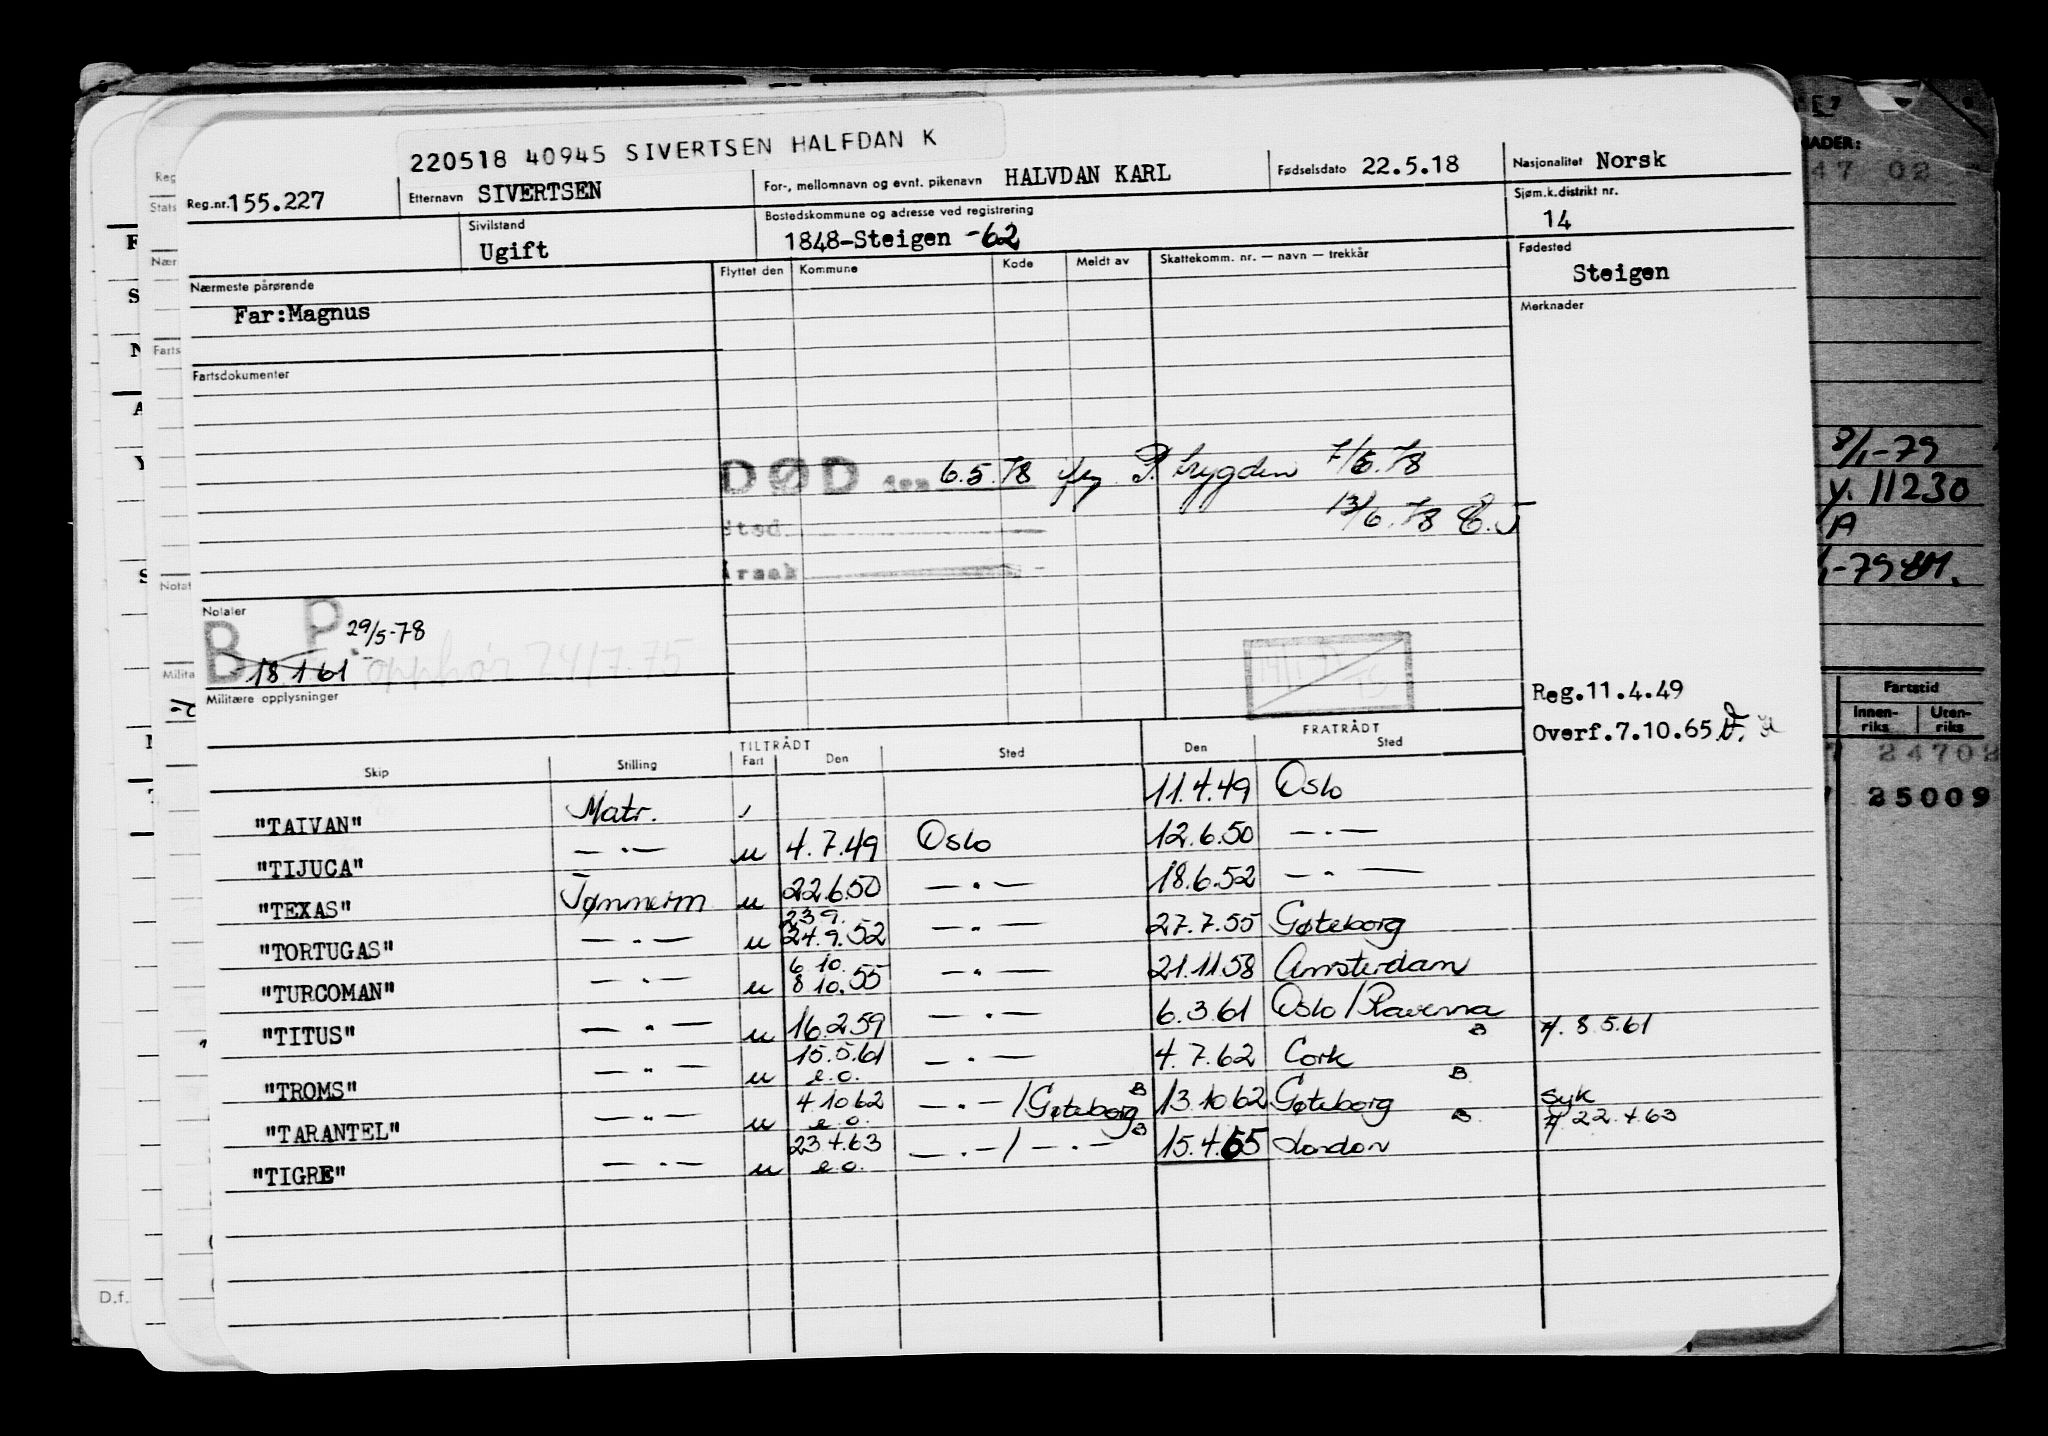 220518 40945 SIVERTSEN HALFDAN K
Reg.nr. 155.227
Etternavn SIVERTSEN
For-, mellomnavn og evnt. pikenavn HALVDAN KARL
Fødselsdato 22.5.18
Nasjonalitet Norsk
Sivilstand
Ugift
Bostedskommune og adresse ved registrering
1848-Steigen -62
Sjøm.k.distrikt nr.
14
Nærmeste pårørende
Far:Magnus
Flyttet den Kommune Kode Meldt av Skattekomm. nr. — navn — trekkår
Fødested
Steigen
Merknader
Fartsdokumenter
DØD den 6.5.78 P. trygden 7/6.78
13/6.78
Sted
Årsak
Notater
B P. 29/5-78
18 1 61 opphør 24/7-75
Militære opplysninger
Reg.11.4.49
Overf.7.10.65
TILTRÅDT FRATRÅDT
Skip Stilling Fart Den Sted Den Sted
"TAIVAN" Matr. 11.4.49 Oslo
"TIJUCA" —.— u 4.7.49 Oslo 12.6.50 —.—
"TEXAS" Tømmerm u 22.6.50 —.— 18.6.52 —.—
23 9.
"TORTUGAS" —.— u 24.9.52 —.— 27.7.55 Gøteborg
6 10.
"TURCOMAN" —.— u 8 10.55 —.— 21.11.58 Amsterdam
"TITUS" —.— u 16.2.59 —.— 6.3.61 Oslo/Ravenna B 8.5.61
"TROMS" —.— u 15.5.61 e.o. —.— 4.7.62 Cork B
"TARANTEL" —.— u 4.10 62 e.o. —.—/Gøteborg B 13.10.62 Gøteborg B syk
22.4 63
"TIGRE" —.— u 23 4 63 e.o. —.—/—.— B 15.4.65 London
8/1-79
y. 11230
A
Fartstid
Innen-riks Uten-riks
24702
25009
D.f.